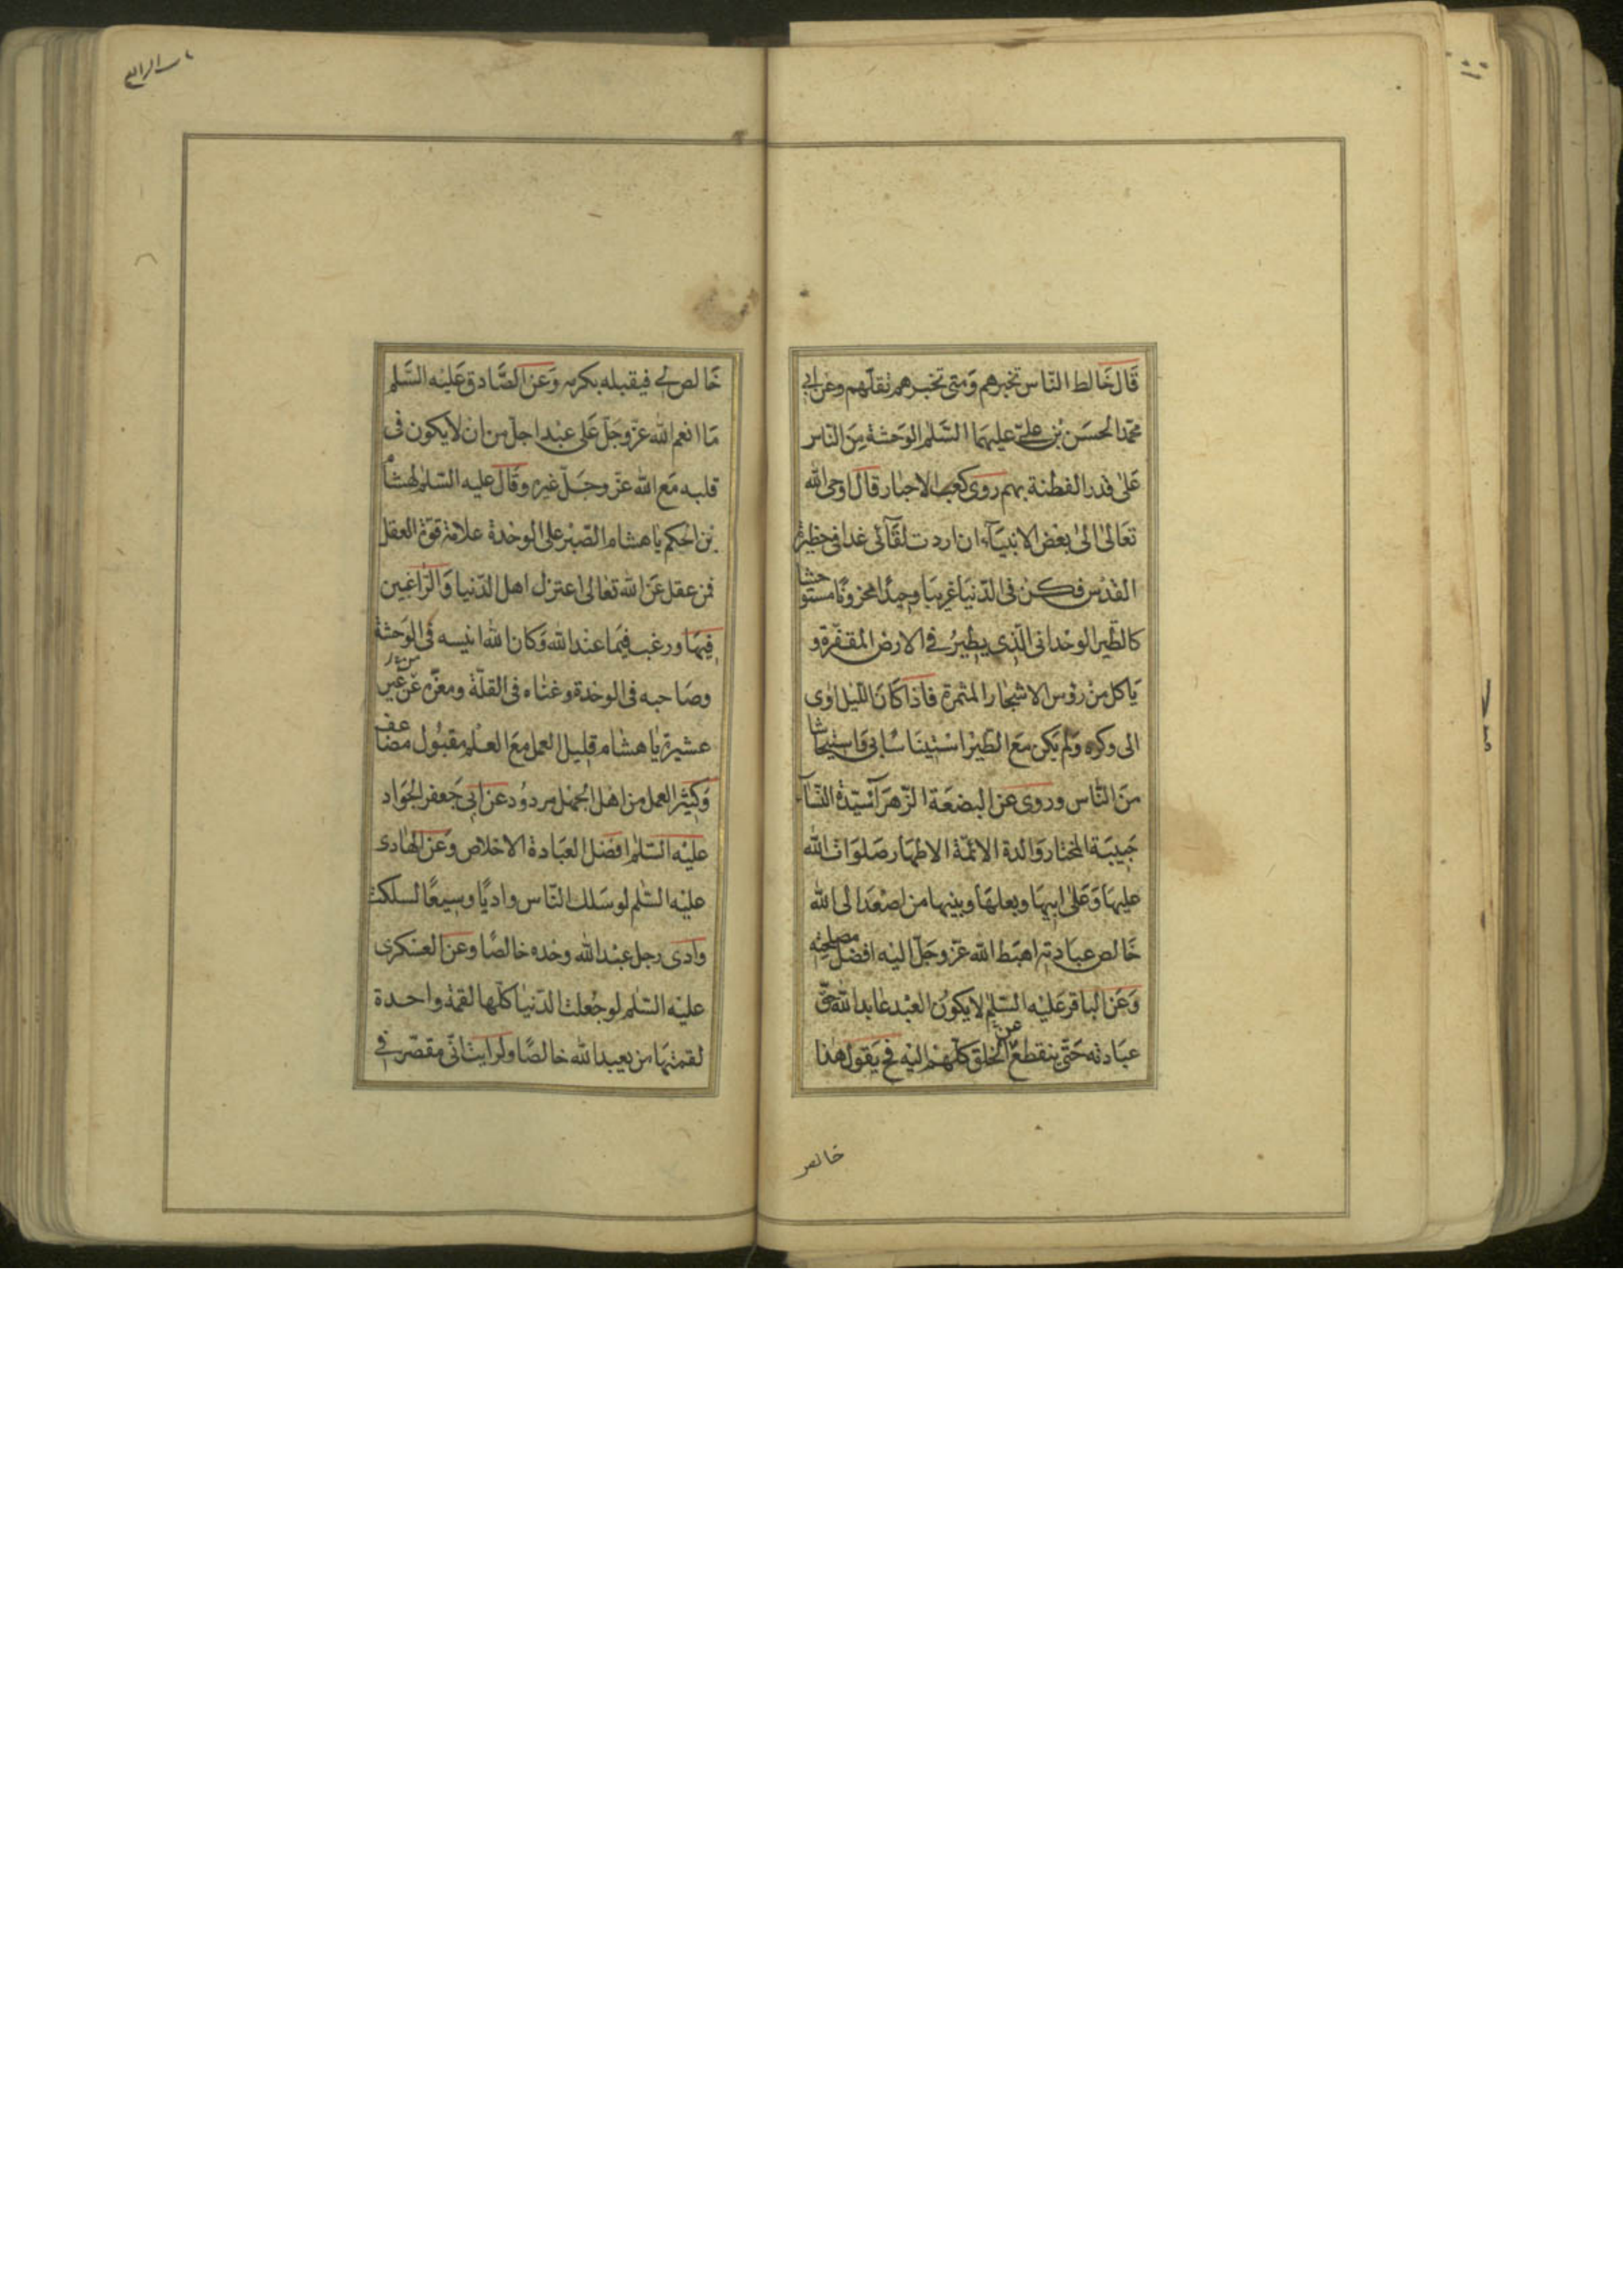 قَال خَالط النّاس تخبرهم وَمتى تخبرهم تقلهم وعن ابي
محمّد الحسَن بْن علىّ عليهمَا السَّلم الوَحشة مِنَ النّاس
عَلىٰ قدر الفطنة بهم روى كعب الاحبار قال اوحى الله
تعَالىٰ الىٰ بعْض الانبيَآء ان اردت لقآئى غدا فى حظيرة
القدْس فكن فى الدّنيَا غريبَا وحيدًا محزونًا مستوحشا
كالطّير الوحْدانى الّذى يطيرُ فے الارض المقفرة و
يَاكل منْ رؤس الاشجَار المثمرة فاذا كَانَ اللّيل اوٰى
الى وكره وَلم يكن مَع الطّيْر اسْتينَاسًا بى وَاستيحاشا
منَ النّاس وروى عن البضعَة الزّهرَآ سَيّدة النّسَآء
حَبيبَة المختار وَالدة الائمّة الاطهَار صَلوَات الله
عليهَا وَعَلىٰ ابيهَا وبعلهَا وبنيها من اصْعَد الى الله
خَالص عبَادته اهبَط الله عزّ وجَلّ اليْه افضل مصلحته
وَعَن الباقر عَليْه السّلم لا يكوُن العبْد عابدا لله حقّ
عبَادته حَتّى ينقطع عن الخلق كلّهمْ اليْه فح يَقول هٰذا
خالص
خَالص لے فيقبله بكرمه وَعَن الصَّادق عَليْه السَّلم
مَا انعم الله عزّ وجَلّ عَلى عبْد اجلّ من ان لا يكون فى
قلبه مَع الله عزّ وجَلّ غيره وقَال عليه السّلم لهشام
بْن الحكم يٰا هشام الصّبْر على الوحْدة علامة قوّة العقل
فمن عقل عَن الله تعَالى اعتزل اهل الدّنيا وَالرّاغبين
فِيهَا ورغب فيمَا عنْد الله وَكان الله انيسه فى الوَحشة
وصَاحبه فى الوحْدة وغنٰاه فى القلّة ومعزّه من غير
عشيرة يٰا هشٰام قليل العمل مَع العلْم مقبُول مضاعف
وَكثيْر العمل من اهْل الجهْل مردوُد عن ابى جَعفر الجَوَاد
عليْه السّلم افضَل العبَادة الاخلاص وَعَن الهٰادى
عليْه السّلم لو سَلك النّاس واديًا وسيعًا لسلكت
وادى رجل عبْد الله وحْده خالصًا وعن العسْكرى
عليْه السّلم لو جُعلت الدّنيٰا كلّها لقمة واحدة
لقمتهَا من يعبد الله خالصًا ولرايت انّى مقصّر فے